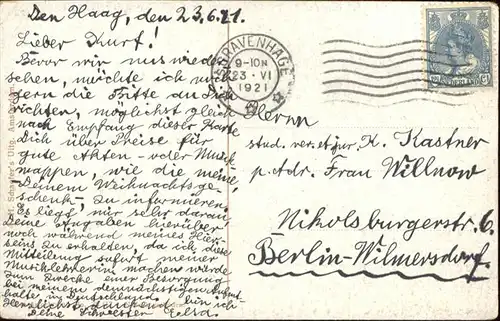 Den Haag, den 23.6.21.
Lieber Kurt!
Bevor wir uns wieder
sehen, möchte ich noch
gern die Bitte an Dich
richten, möglichst gleich
nach Empfang dieser Karte
Dich über Preise für
gute Akten- oder Musik
mappen, wie die meine,
Deinem Weihnachtsge-
schenk, zu informieren.
Es liegt mir sehr daran,
Deine Angaben hierüber
noch während meines Hier-
seins zu erhalten, da ich die
Mitteilung sofort meiner
Musiklehrerin machen würde
zum Zwecke einer Besorgung
bei meinem demnächstigen Aufent-
halte in Deutschland.
Herzlichst dankend bin ich
Deine Schwester Elsa.
Schaefer's Uitg. Amsterdam.
'S GRAVENHAGE
9-10N
23 VI
1921
NEDERLAND
Herrn
stud. rer. et jur. K. Kastner
p. Adr. Frau Willnow
Nikolsburgerstr. 6.
Berlin-Wilmersdorf.